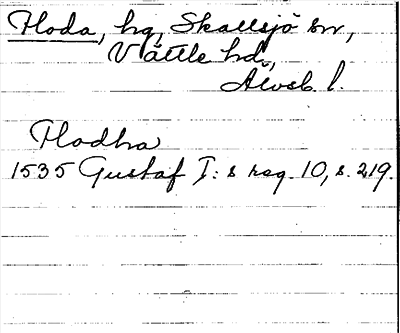 Floda, hg, Skallsjö sn,
Vättle hd,
Älvsb. l.
Flodha
1535 Gustaf I: s reg. 10, s. 219.